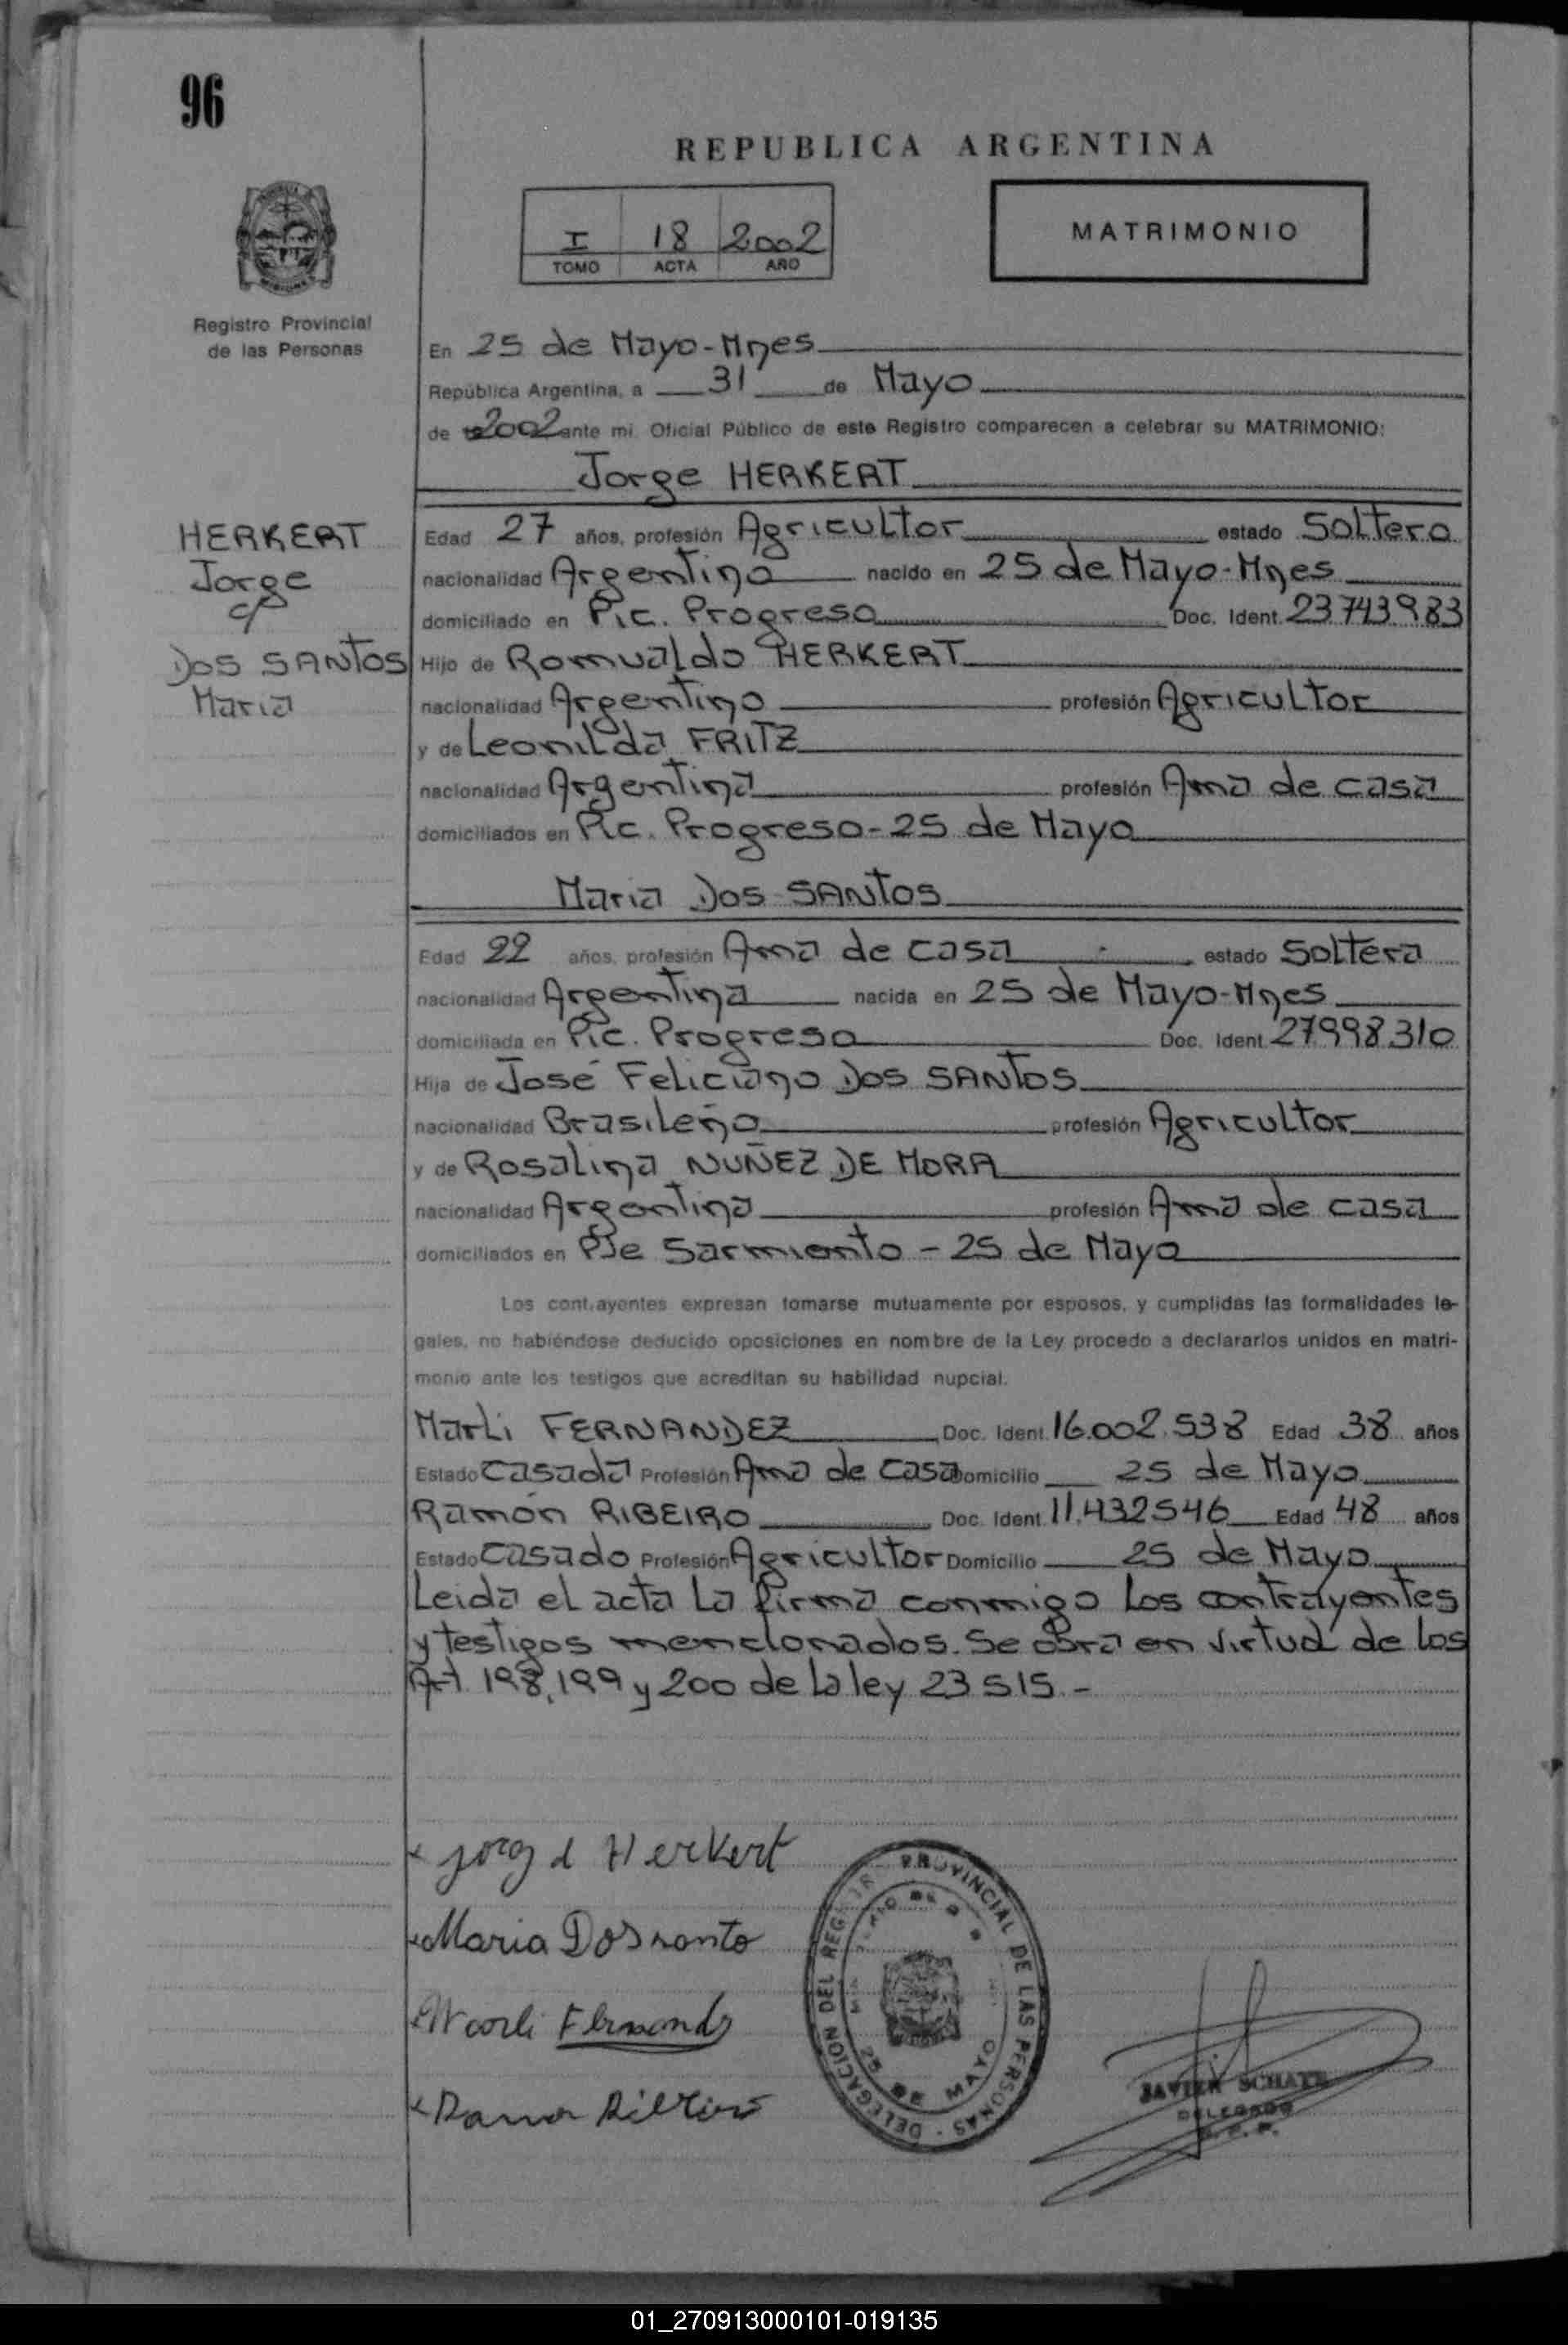 96
REPUBLICA ARGENTINA
I 18 2002
TOMO ACTA AÑO
MATRIMONIO
Registro Provincial
de las Personas
En 25 de Mayo-Mnes
República Argentina, a 31 de Mayo
de 2002 ante mi Oficial Público de este Registro comparecen a celebrar su MATRIMONIO:
Jorge HERKERT
HERKERT
Jorge
c/
DOS SANTOS
Maria
Edad 27 años, profesión Agricultor estado Soltero
nacionalidad Argentino nacido en 25 de Mayo-Mnes
domiciliado en Pic. Progreso Doc. Ident. 23.743.983
Hijo de Romualdo HERKERT
nacionalidad Argentino profesión Agricultor
y de Leonilda FRITZ
nacionalidad Argentina profesión Ama de casa
domiciliados en Pic. Progreso-25 de Mayo
Maria Dos SANTOS
Edad 22 años, profesión Ama de casa estado Soltera
nacionalidad Argentina nacida en 25 de Mayo-Mnes
domiciliada en Pic. Progreso Doc. Ident. 27.998.310
Hija de José Feliciano Dos SANTOS
nacionalidad Brasileño profesión Agricultor
y de Rosalina NUÑEZ DE MORA
nacionalidad Argentina profesión Ama de casa
domiciliados en Pje Sarmiento - 25 de Mayo
Los contrayentes expresan tomarse mutuamente por esposos, y cumplidas las formalidades le-
gales, no habiéndose deducido oposiciones en nombre de la Ley procedo a declararlos unidos en matri-
monio ante los testigos que acreditan su habilidad nupcial.
Marli FERNANDEZ Doc. Ident. 16.002.538 Edad 38 años
Estado Casada Profesión Ama de casa Domicilio 25 de Mayo
Ramón RIBEIRO Doc. Ident. 11.432546 Edad 48 años
Estado Casado Profesión Agricultor Domicilio 25 de Mayo
Leida el acta La firma conmigo Los contrayentes
y testigos mencionados. Se obra en virtud de los
Art. 198, 199 y 200 de la ley 23515.-
Jorge Herkert
Maria Dossanto
Marli Fernandz
Ramon Ribeiro
DELEGACION DEL REGISTRO PROVINCIAL DE LAS PERSONAS
25 DE MAYO
JAVIER
DELEGADO
01_270913000101-019135